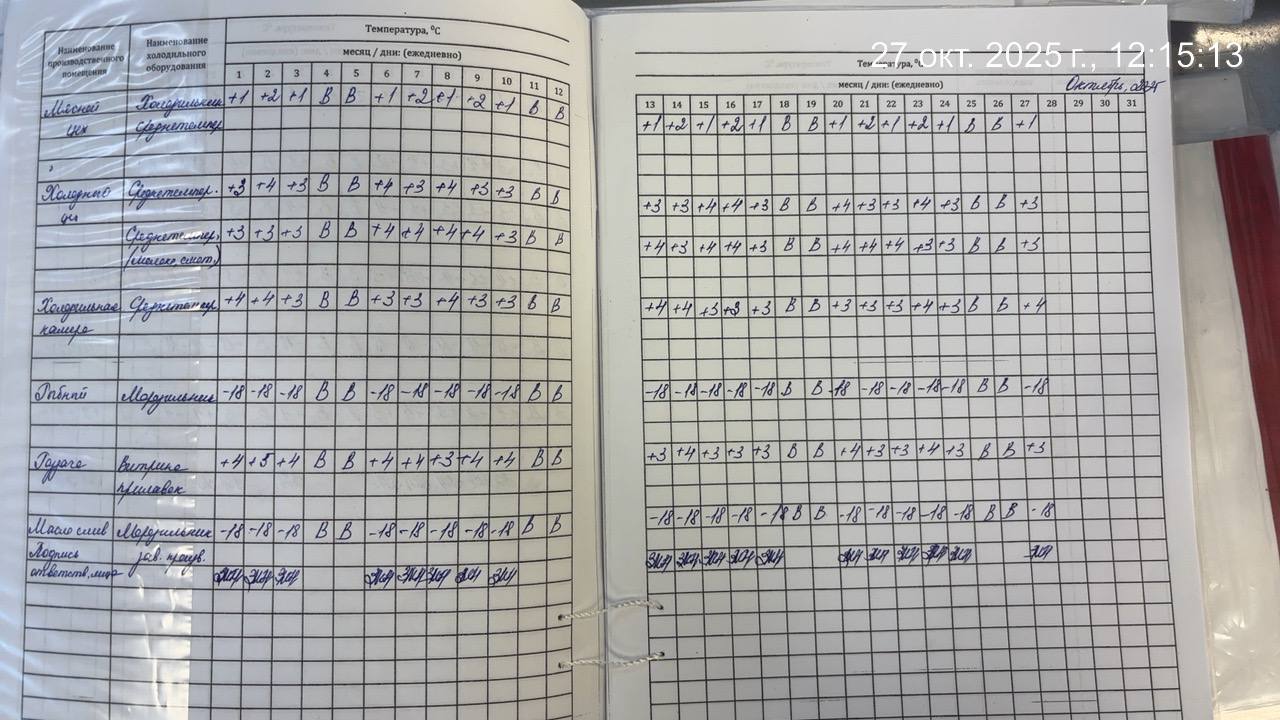 27 окт. 2025 г., 12:15:13
Наименование производственного помещения
Наименование холодильного оборудования
Температура, °С
месяц / дни: (ежедневно)
1 2 3 4 5 6 7 8 9 10 11 12
Мясной Холодильник +1 +2 +1 В В +1 +2 +1 +2 +1 В В
цех среднетемпер
Холодный Среднетемпер. +3 +4 +3 В В +4 +3 +4 +3 +3 В В
цех
Среднетемпер. +3 +3 +3 В В +4 +4 +4 +4 +3 В В
(молоко, смет.)
Холодильная Среднетемпер +4 +4 +3 В В +3 +3 +4 +3 +3 В В
камера
Рыбный Морозильник -18 -18 -18 В В -18 -18 -18 -18 -18 В В
Раздача Витрина +4 +5 +4 В В +4 +4 +3 +4 +4 В В
прилавок
Масло слив Морозильник -18 -18 -18 В В -18 -18 -18 -18 -18 В В
Подпись зав. произв.
ответств. лица
Температура, °С
месяц / дни: (ежедневно) Октябрь, 2025
13 14 15 16 17 18 19 20 21 22 23 24 25 26 27 28 29 30 31
+1 +2 +1 +2 +1 В В +1 +2 +1 +2 +1 В В +1
+3 +3 +4 +4 +3 В В +4 +3 +3 +4 +3 В В +3
+4 +3 +4 +4 +3 В В +4 +4 +4 +3 +3 В В +3
+4 +4 +3 +3 +3 В В +3 +3 +3 +4 +3 В В +4
-18 -18 -18 -18 -18 В В -18 -18 -18 -18 -18 В В -18
+3 +4 +3 +3 +3 В В +4 +3 +3 +4 +3 В В +3
-18 -18 -18 -18 -18 В В -18 -18 -18 -18 -18 В В -18